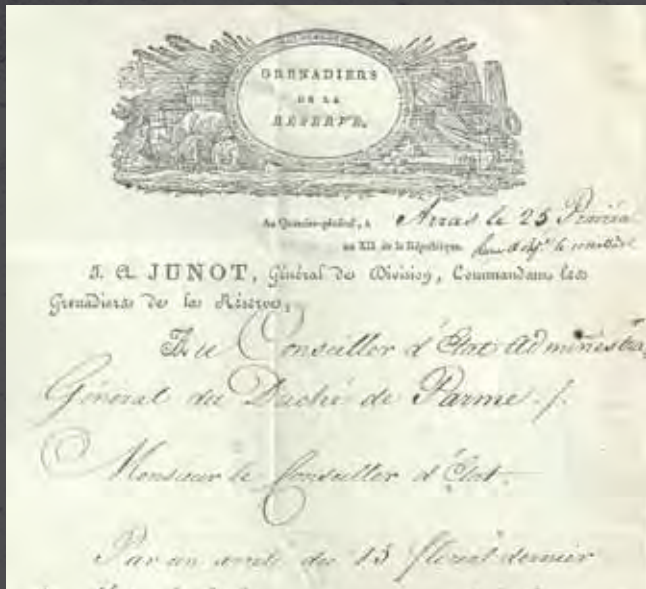 GRENADIERS
DE LA
RÉSERVE.
Au Quartier-général, à Arras le 25 Prairial
an XII de la République.
J. A. JUNOT, Général de Division, Commandant les
Grenadiers de la Réserve,
Au Conseiller d'État administra
Général du Duché de Parme ./.
Monsieur le Conseiller d'État.
Par un arrêté du 13 floréal dernier